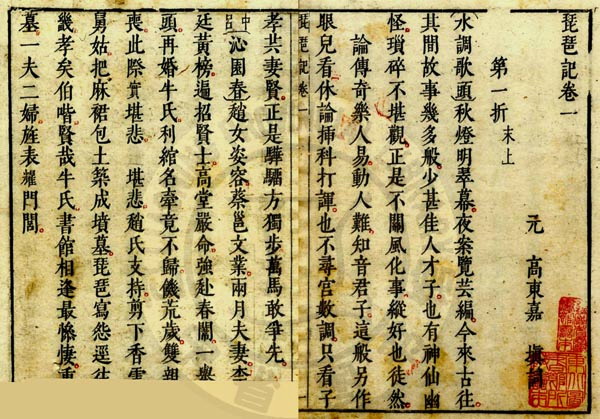 琵琶記卷一
元 高東嘉 填詞
第一折 末上
水調歌頭秋燈明翠幕夜案覽芸編今來古往
其間故事幾多般少甚佳人才子也有神仙幽
怪瑣碎不堪觀正是不關風化事縱好也徒然
論傳奇樂人易動人難知音君子這般另作
眼兒看休論插科打諢也不尋宮數調只看子
琵琶記卷一
孝共妻賢。正是驊騮方獨步萬馬敢爭先。
中呂 沁園春趙女姿容蔡邕文業兩月夫妻
廷黃榜遍招賢士。高堂嚴命強赴春闈。一舉
頭再婚牛氏利綰名牽竟不歸。饑荒歲雙親
喪此際實堪悲。 堪悲。趙氏支持。剪下香雲
舅姑把麻裙包土築成墳墓。琵琶寫怨逕往
幾。孝矣伯喈賢哉牛氏。書館相逢最慘悽。重
墓一夫二婦旌表耀門閭。